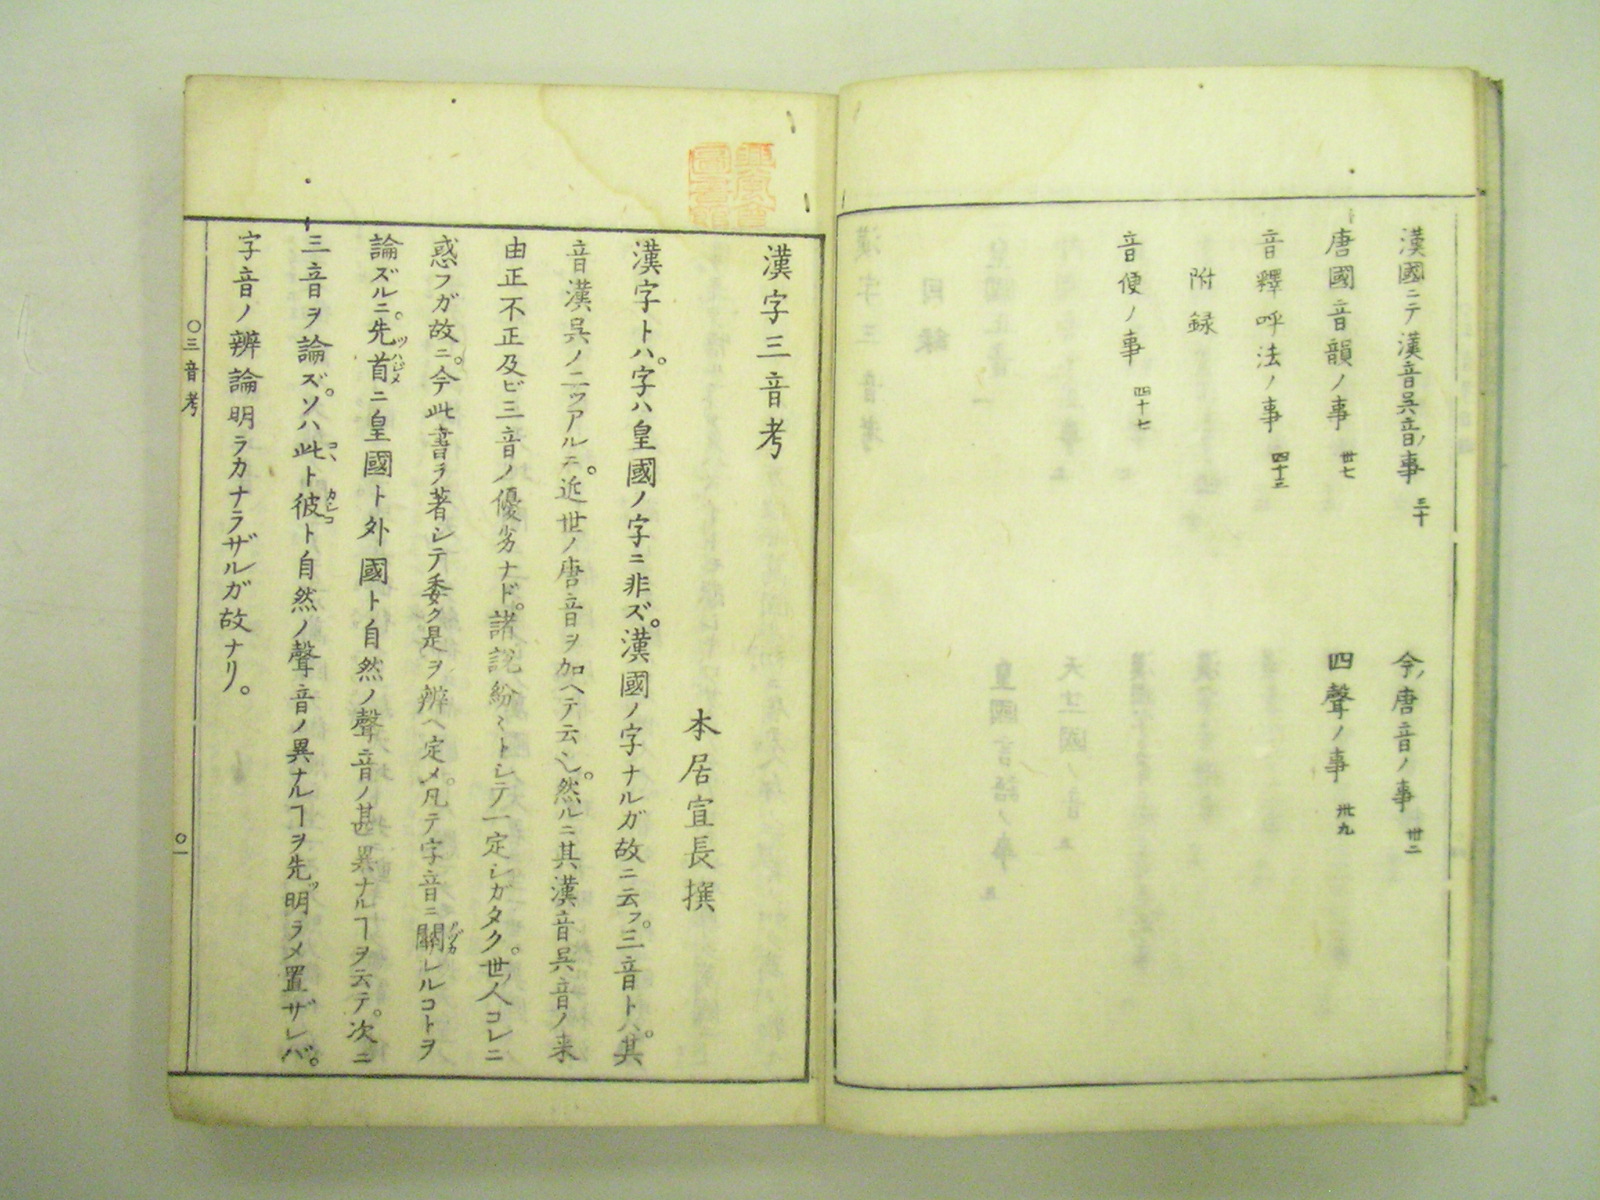 漢國ニテ漢音呉音ノ事 三十
今ノ唐音ノ事 卅二
唐國音韻ノ事 卅七
四聲ノ事 卅九
音釋呼法ノ事 四十三
附録
音便ノ事 四十七
漢字三音考
本居宣長撰
漢字トハ。字ハ皇國ノ字ニ非ズ。漢國ノ字ナルガ故ニ云フ。三音トハ。其
音漢呉ノ二ツアルニ。近世ノ唐音ヲ加ヘテ云ヘシ。然ルニ其漢音呉音ノ来
由正不正及ビ三音ノ優劣ナド。諸説紛〻トシテ一定シガタク。世ノ人コレニ
惑フガ故ニ。今此書ヲ著シテ委ク是ヲ辨ヘ定メ。凡テ字音ニ關レルコトヲ
論ズルニ。先ツ首ハジメニ皇國ト外國ト自然ノ聲音ノ甚異ナルヿヲ云テ。次ニ
三音ヲ論ズ。ソハ此コヽト彼カシコト自然ノ聲音ノ異ナルヿヲ先ッ明ラメ置ザレバ。
字音ノ辨論明ラカナラザルガ故ナリ。
〇三音考
〇一